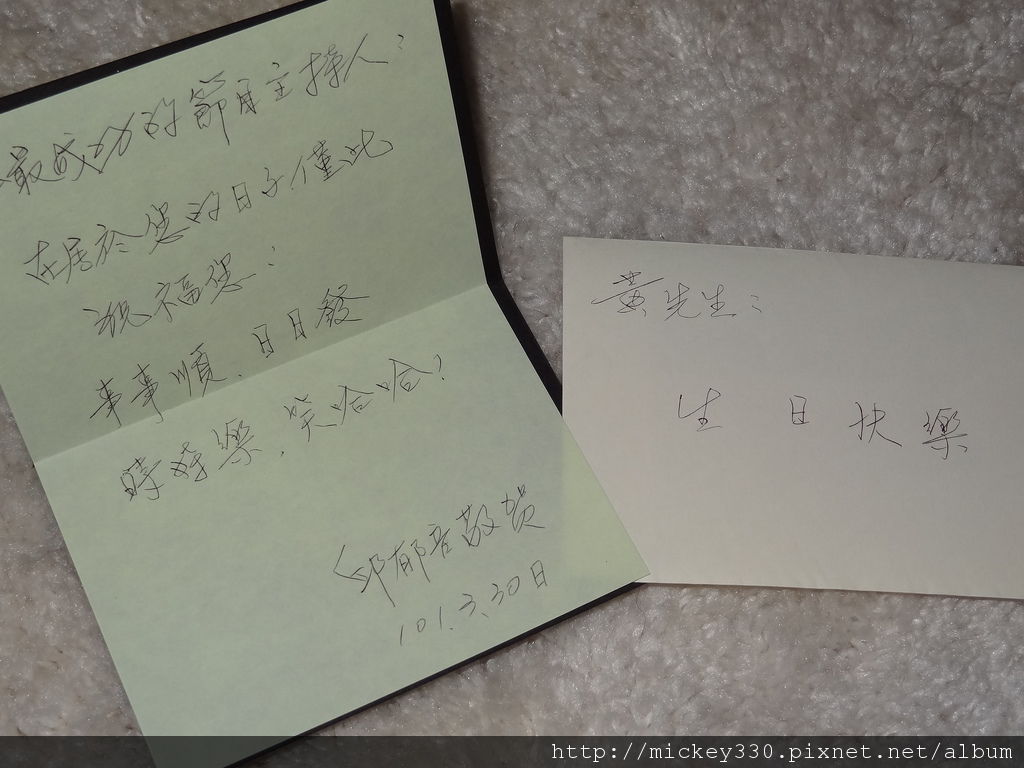 最成功的節目主持人:
在居於您的日子僅此
祝福您:
事事順、日日發
時時樂、笑哈哈!
邱郁君敬賀
101.3.30日
黃先生:
生日快樂
http://mickey330.pixnet.net/album